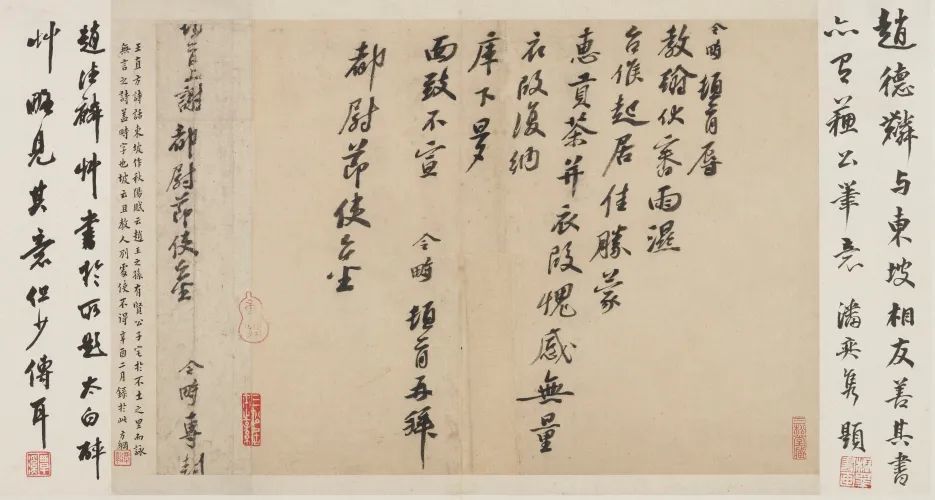 趙德麟与東坡相友善其書
亦有蘇公筆意 潘奕雋題
令畤頓首辱
教翰伏審雨濕
台候起居佳勝蒙
惠貢茶并衣段愧感無量
衣段復納
庫下
面致不宣 令畤頓首再拜
都尉節使台坐
頓首上謝 都尉節使台坐 令畤專封
王直方詩話東坡作秋陽賦云趙王之孫有賢公子宅於不土之里而詠
無言之詩蓋時字也坡云且教人別處使不得辛酉二月錄於此 方綱
趙德麟艸書於所題太白醉
艸略見其意但少傳耳